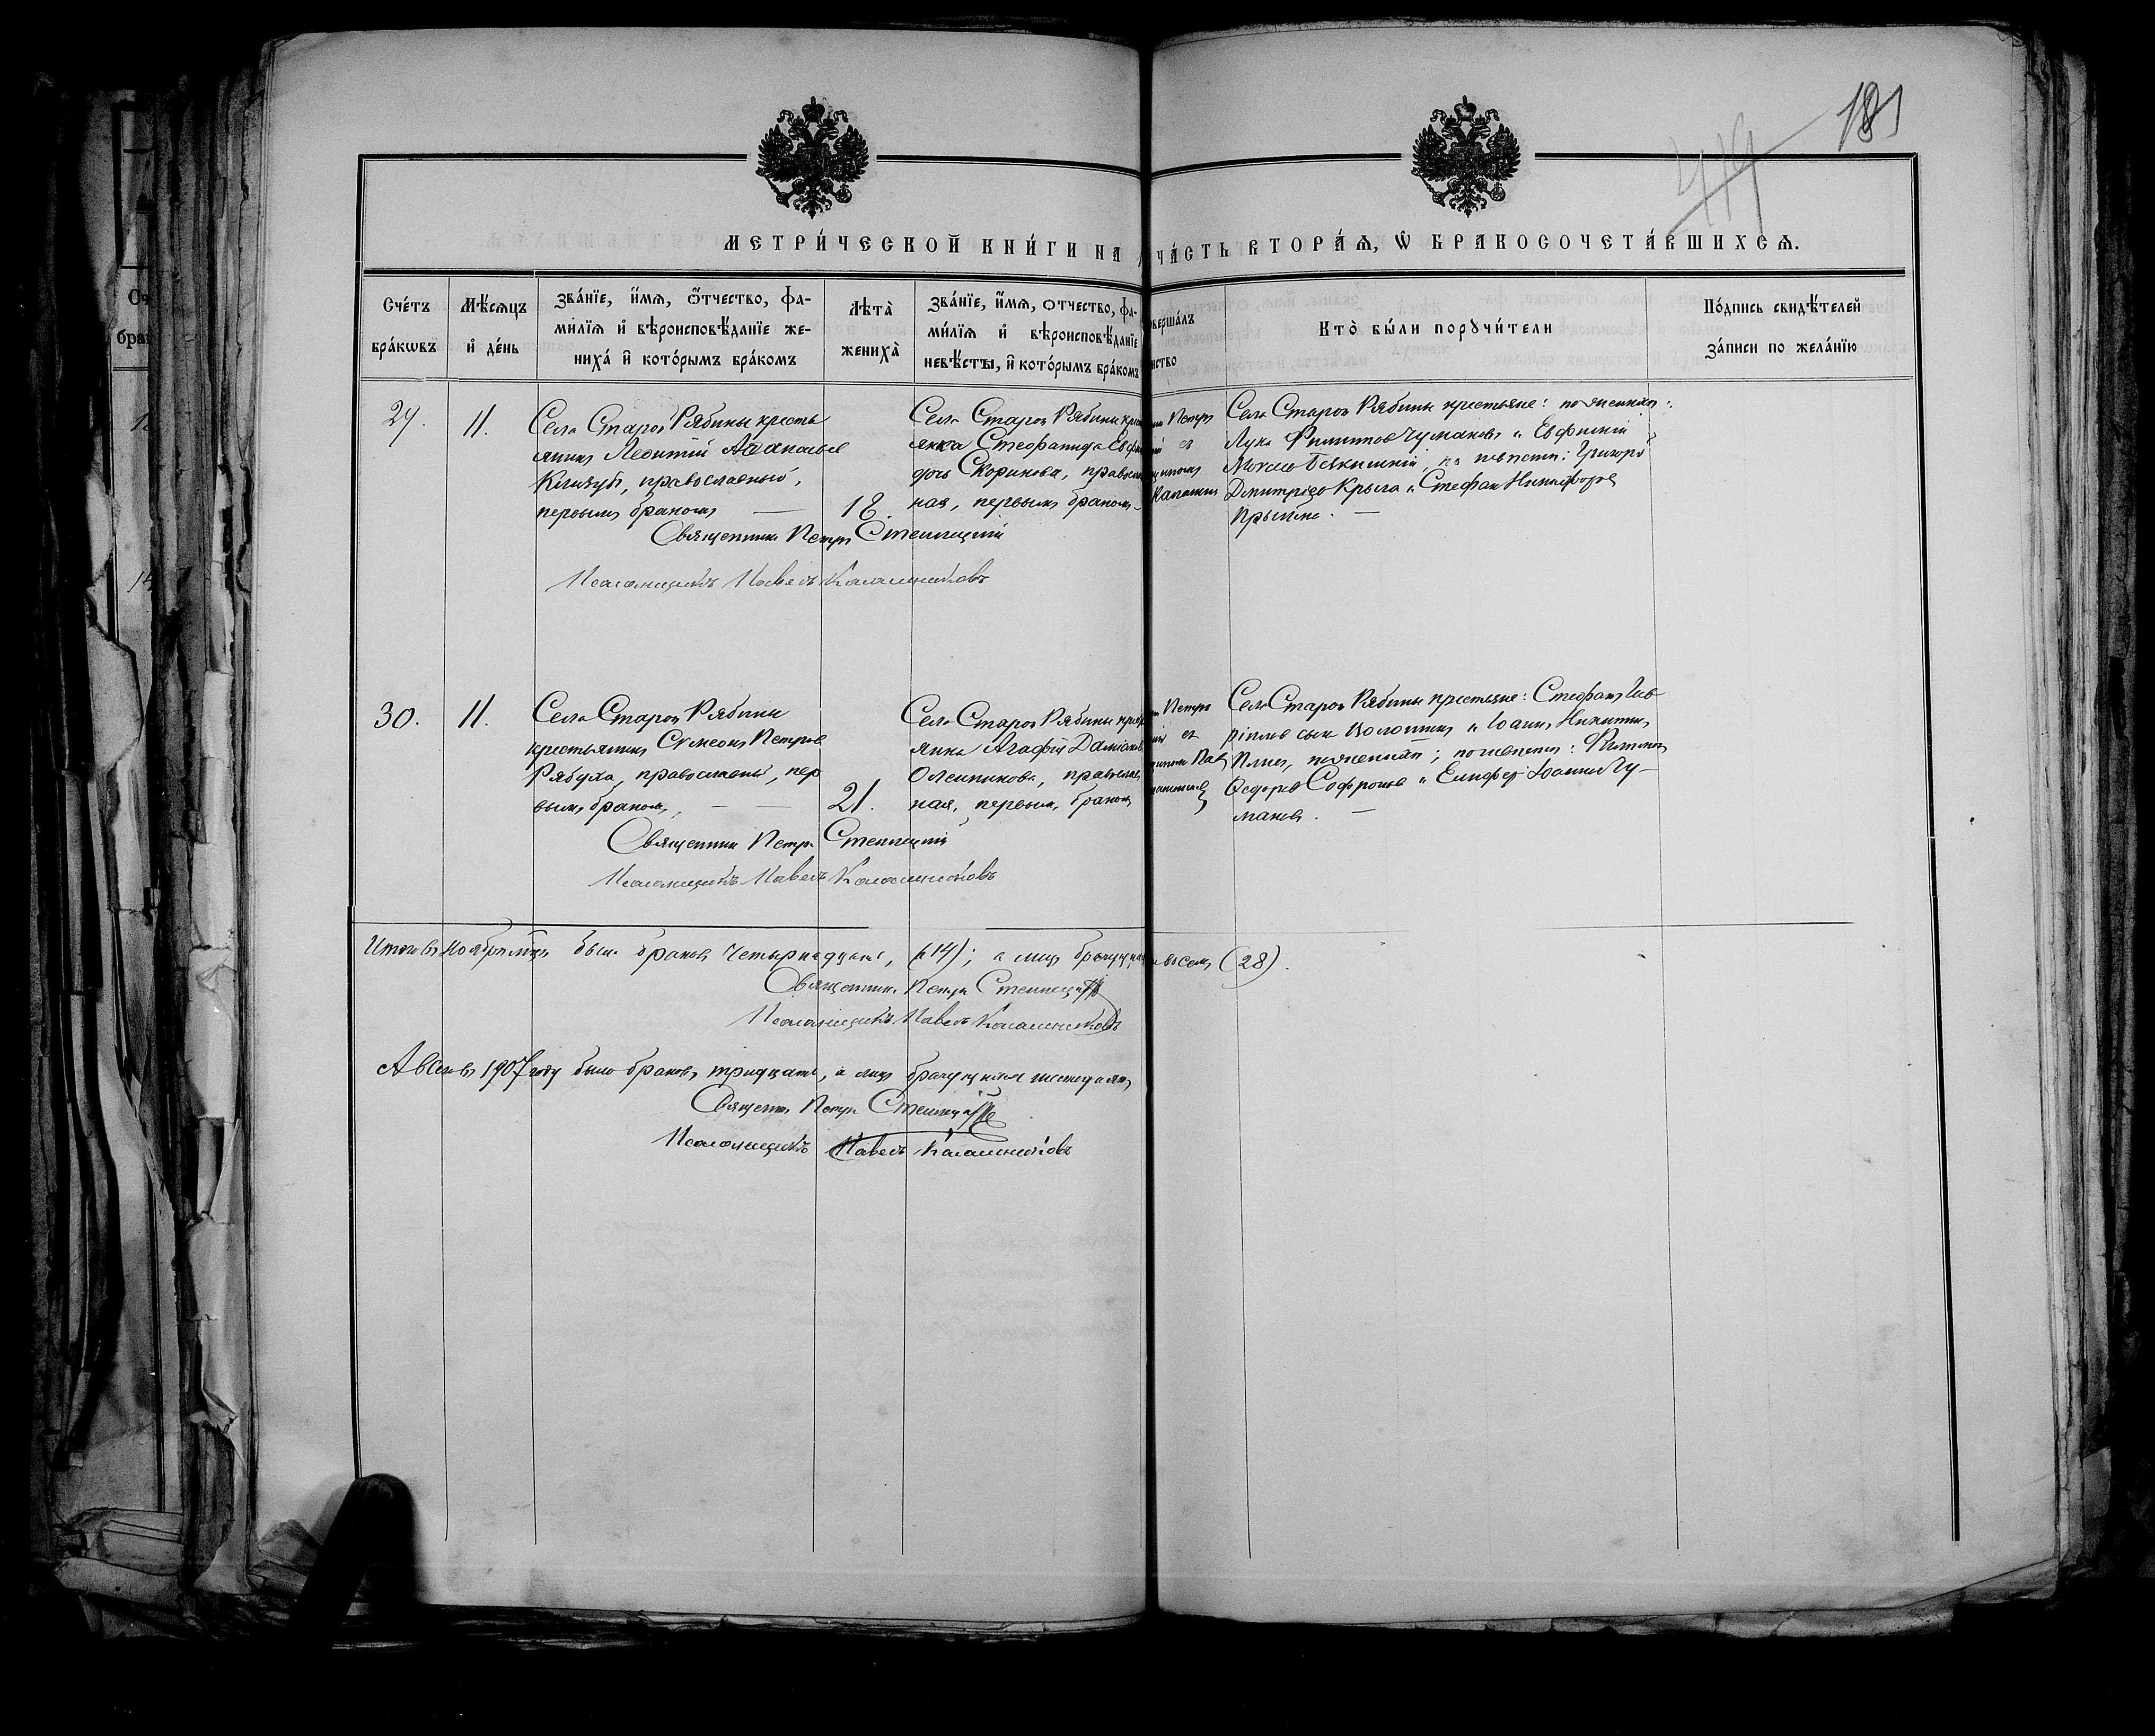 181
419
МЕТРИ́ЧЕСКОЙ КНИ́ГИ НА
ЧА́СТЬ ВТОРА́Ѧ, Ѽ БРАКОСОЧЕТА́ВШИХСѦ.
Сче́тъ бра́кѡвъ
Мѣ́сѧцъ и҆ де́нь
Зва́нїе, и҆́мѧ, ѻ҆́тчество, фа-
ми́лїѧ и҆ вѣроисповѣ́данїе же-
ниха́ и҆ кото́рымъ бра́комъ
Лѣта̀ жениха̀
Зва́нїе, и҆́мѧ, отчество, фа-
ми́лїѧ и҆ вѣроисповѣ́данїе
невѣ́сты, и҆ кото́рымъ бра́комъ
верша́лъ
нство
Кто̀ бы́ли порꙋчи́тели
По́дпись свидѣ́телей
за́писи по жела́нїю
29. 11.
Села Старой Рябины кресть
янинъ Леонтій Аѳанасьев
православный,
первымъ бракомъ — 18.
Села Старой Рябины крес
янка Стефанида Евфим
дочь Скорикова, правосла
ная, первымъ бракомъ
Петръ
Села Старой Рябины крестьяне: по женихѣ:
Лука Филиппов Чумаковъ и Евфимій
по невѣстѣ: Григорій
Димитріев Крыга и Стефан Никифоров
Священникъ Петръ Степпецкій
Псаломщикъ Павелъ Калашниковъ
30. 11.
Села Старой Рябины
крестьянинъ Сѵмеонъ Петров
Рябуха, православный, пер
вымъ бракомъ, — — 21.
Села Старой Рябины крес
янка Агафія Даміанов
Олейникова, правосла
ная, первымъ бракомъ
Петръ
Села Старой Рябины крестьяне: Стефанъ Гав
ріиловъ сынъ и Іоаннъ Никитинъ
по женихѣ; по невѣстѣ: Филиппъ
Ѳедоров Софронов и Іоаннов Чу-
маковъ. —
Священникъ Петръ Степпецкій
Псаломщикъ Павелъ Калашниковъ
Итого въ Ноябрѣ м-цѣ было браковъ четырнадцать, (14); а лицъ брачущихся (28).
Священникъ Петръ Степпецкій
Псаломщикъ Павелъ Калашниковъ
А всего въ 1907 году было браковъ тридцать, а лицъ брачущихся шестьдесятъ
Священникъ Петръ Степпецкій
Псаломщикъ Павелъ Калашниковъ